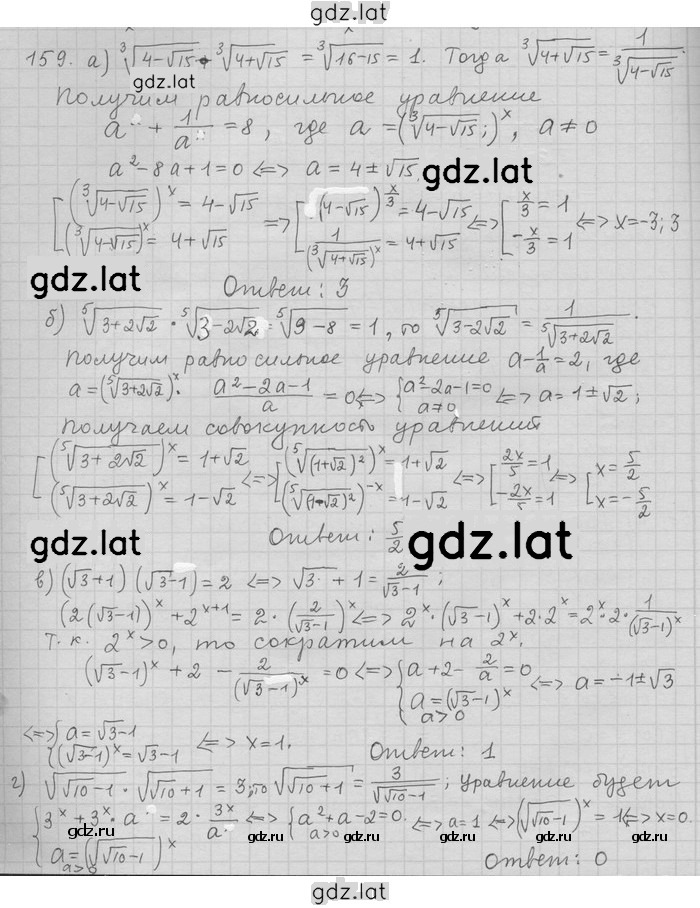 gdz.lat
159. а) ∛(4-√15) · ∛(4+√15) = ∛(16-15) = 1. Тогда ∛(4+√15) = 1/∛(4-√15).
gdz.lat
Получим равносильное уравнение
a + 1/a = 8, где a = (∛(4-√15);)^x, a ≠ 0
a² - 8a + 1 = 0 <=> a = 4 ± √15.
gdz.lat
[(∛(4-√15))^x = 4-√15 => [(4-√15)^(x/3) = 4-√15 <=> [x/3 = 1 <=> x = -3; 3
(∛(4-√15))^x = 4+√15 1/(∛(4+√15))^x = 4+√15 -x/3 = 1
gdz.lat
gdz.lat
Ответ: 3
б) ⁵√(3+2√2) · ⁵√(3-2√2) = ⁵√(9-8) = 1, то ⁵√(3-2√2) = 1/⁵√(3+2√2).
Получим равносильное уравнение a - 1/a = 2, где
a = (⁵√(3+2√2))^x. (a²-2a-1)/a = 0 <=> {a²-2a-1=0 <=> a = 1±√2;
a≠0
Получаем совокупность уравнений
[(⁵√(3+2√2))^x = 1+√2 <=> [(⁵√((1+√2)²))^x = 1+√2 <=> [2x/5 = 1 <=> [x = 5/2
(⁵√(3+2√2))^x = 1-√2 (⁵√((1-√2)²))^-x = 1-√2 -2x/5 = 1 x = -5/2
Ответ: 5/2
gdz.lat
gdz.lat
в) (√3+1)(√3-1) = 2 <=> √3 + 1 = 2/(√3-1);
(2(√3-1))^x + 2^(x+1) = 2·(2/(√3-1))^x <=> 2^x·(√3-1)^x + 2·2^x = 2^x·2·1/(√3-1)^x
Т.к. 2^x > 0, то сократим на 2^x.
(√3-1)^x + 2 - 2/(√3-1)^x = 0 <=> {a + 2 - 2/a = 0 <=> a = -1±√3
a = (√3-1)^x
a > 0
<=> {a = √3-1 <=> x = 1. Ответ: 1
(√3-1)^x = √3-1
г) √(√10-1) · √(√10+1) = 3; то √(√10+1) = 3/√(√10-1); Уравнение будет
{3^x + 3^x·a = 2·3^x/a <=> {a²+a-2=0. <=> a = 1 <=> (√(√10-1))^x = 1 <=> x = 0.
a > 0
a = (√(√10-1))^x
a > 0
gdz.ru
gdz.ru
gdz.ru
gdz.ru
Ответ: 0
gdz.lat